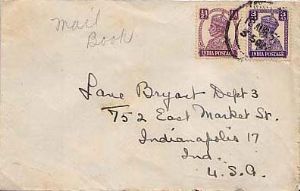 Mail
Book
INDIA POSTAGE
INDIA POSTAGE
Lane Bryant Dept 3
752 East Market St.
Indianapolis 17
Ind.
U.S.A.